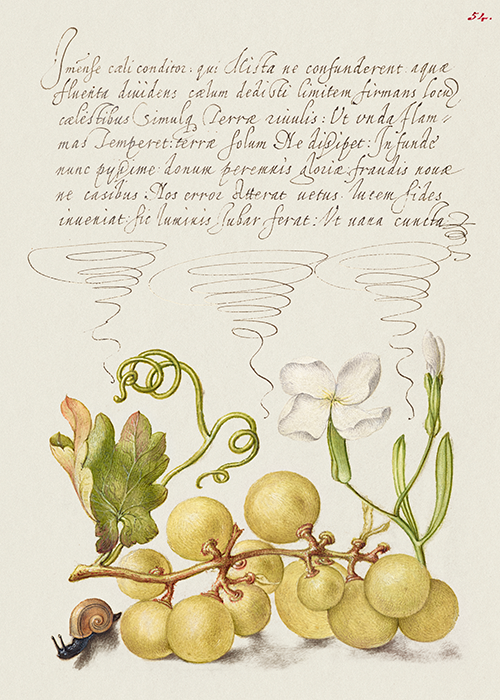 54.
Imense cæli conditor. qui Mista ne confunderent. aquæ
fluenta diuidens cælum dedisti limitem firmans locū
cælestibus Simulq Terræ riuulis: Vt vnda flam-
mas Temperet: terræ solum Ne disipet: Infunde
nunc pysime donum peremnis gloriæ fraudis nouæ
ne casibus Nos error Atterat uetus. lucem fides
inueniat: sic luminis Iubar ferat: Vt uana cuncta